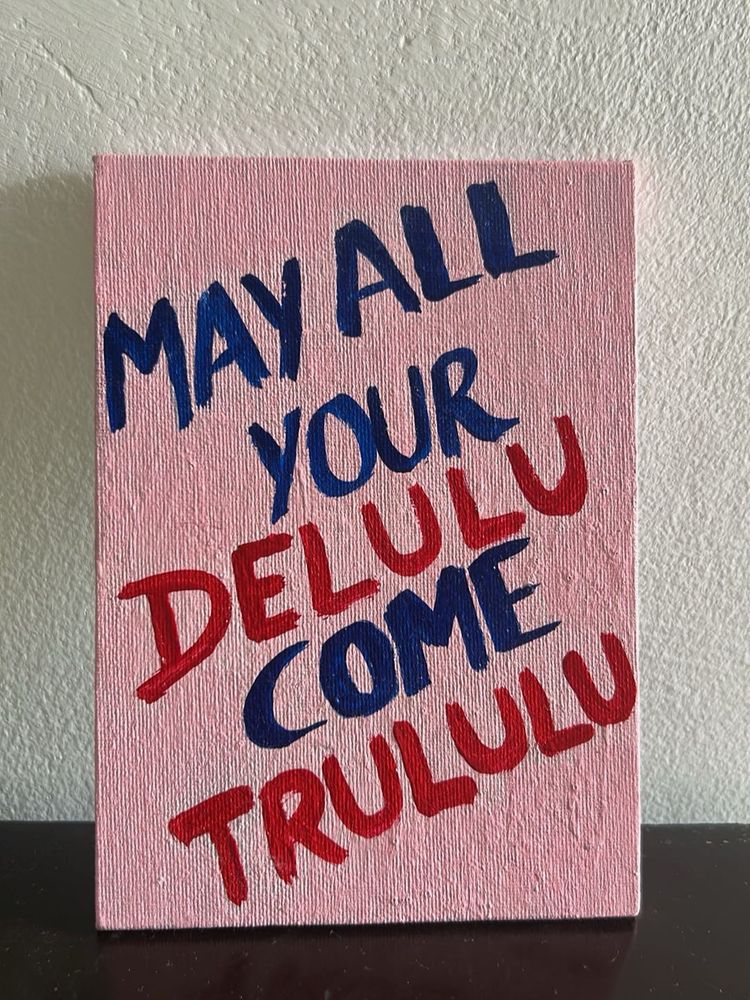 MAY ALL
YOUR
DELULU
COME
TRULULU